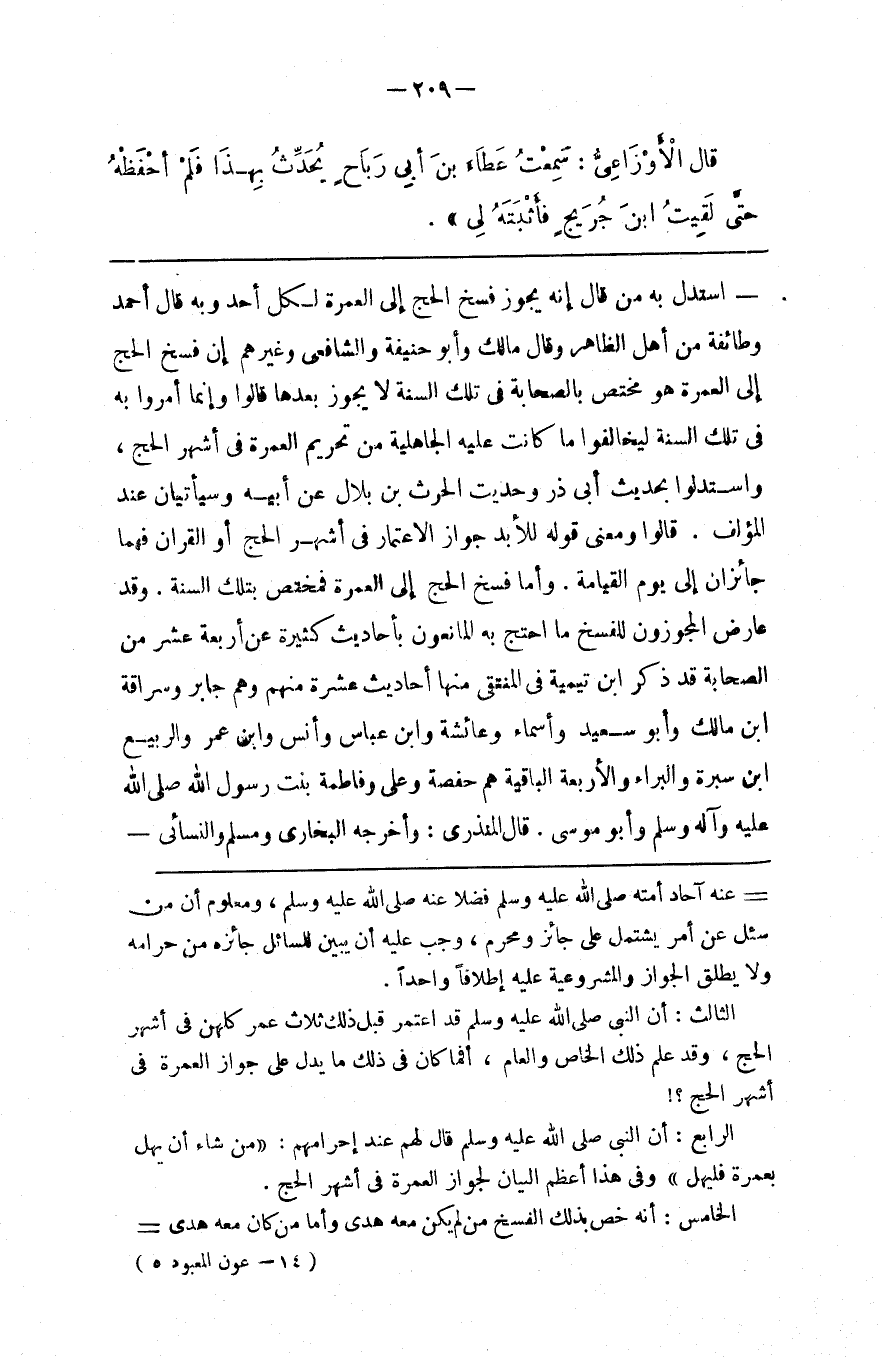 — ٢٠٩ —
قال الْأَوْزَاعِىُّ : سَمِعْتُ عَطَاءَ بنَ أَبِي رَبَاحٍ يُحَدِّثُ بِهـذَا فَلَمْ أَحْفَظْهُ
حتَّى لَقِيتُ ابنَ جُرَيجٍ فَأَثْبَتَهُ لِى » .
— استدل به من قال إنه يجوز فسخ الحج إلى العمرة لـكل أحد وبه قال أحمد
وطائفة من أهل الظاهر وقال مالك وأبو حنيفة والشافعى وغيرهم إن فسخ الحج
إلى العمرة هو مختص بالصحابة فى تلك السنة لا يجوز بعدها قالوا وإنما أمروا به
فى تلك السنة ليخالفوا ما كانت عليه الجاهلية من تحريم العمرة فى أشهر الحج ،
واسـتدلوا بحديث أبى ذر وحديت الحرث بن بلال عن أبيـه وسيأتيان عند
المؤلف . قالوا ومعنى قوله للأبد جواز الاعتمار فى أشهـر الحج أو القران فهما
جائزان إلى يوم القيامة . وأما فسخ الحج إلى العمرة فمختص بتلك السنة . وقد
عارض المجوزون للفسخ ما احتج به المانعون بأحاديث كثيرة عن أربعة عشر من
الصحابة قد ذكر ابن تيمية فى المنتقى منها أحاديث عشرة منهم وهم جابر وسراقة
ابن مالك وأبو سـعيد وأسماء وعائشة وابن عباس وأنس وابن عمر والربيـع
ابن سبرة والبراء والأربعة الباقية هم حفصة وعلى وفاطمة بنت رسول الله صلى الله
عليه وآله وسلم وأبو موسى . قال المنذرى : وأخرجه البخارى ومسلم والنسائى —
= عنه آحاد أمته صلى الله عليه وسلم فضلا عنه صلى الله عليه وسلم ، ومعلوم أن من
سئل عن أمر يشتمل على جائز ومحرم ، وجب عليه أن يبين للسائل جائزه من حرامه
ولا يطلق الجواز والمشروعية عليه إطلاقاً واحداً .
الثالث : أن النبى صلى الله عليه وسلم قد اعتمر قبل ذلك ثلاث عمر كلهن فى أشهر
الحج ، وقد علم ذلك الخاص والعام ، أفما كان فى ذلك ما يدل على جواز العمرة فى
أشهر الحج ؟!
الرابع : أن النبى صلى الله عليه وسلم قال لهم عند إحرامهم : «من شاء أن يهل
بعمرة فليهل » وفى هذا أعظم البيان لجواز العمرة فى أشهر الحج .
الخامس : أنه خص بذلك الفسخ من لم يكن معه هدى وأما من كان معه هدى =
( ١٤ — عون المعبود ٥ )